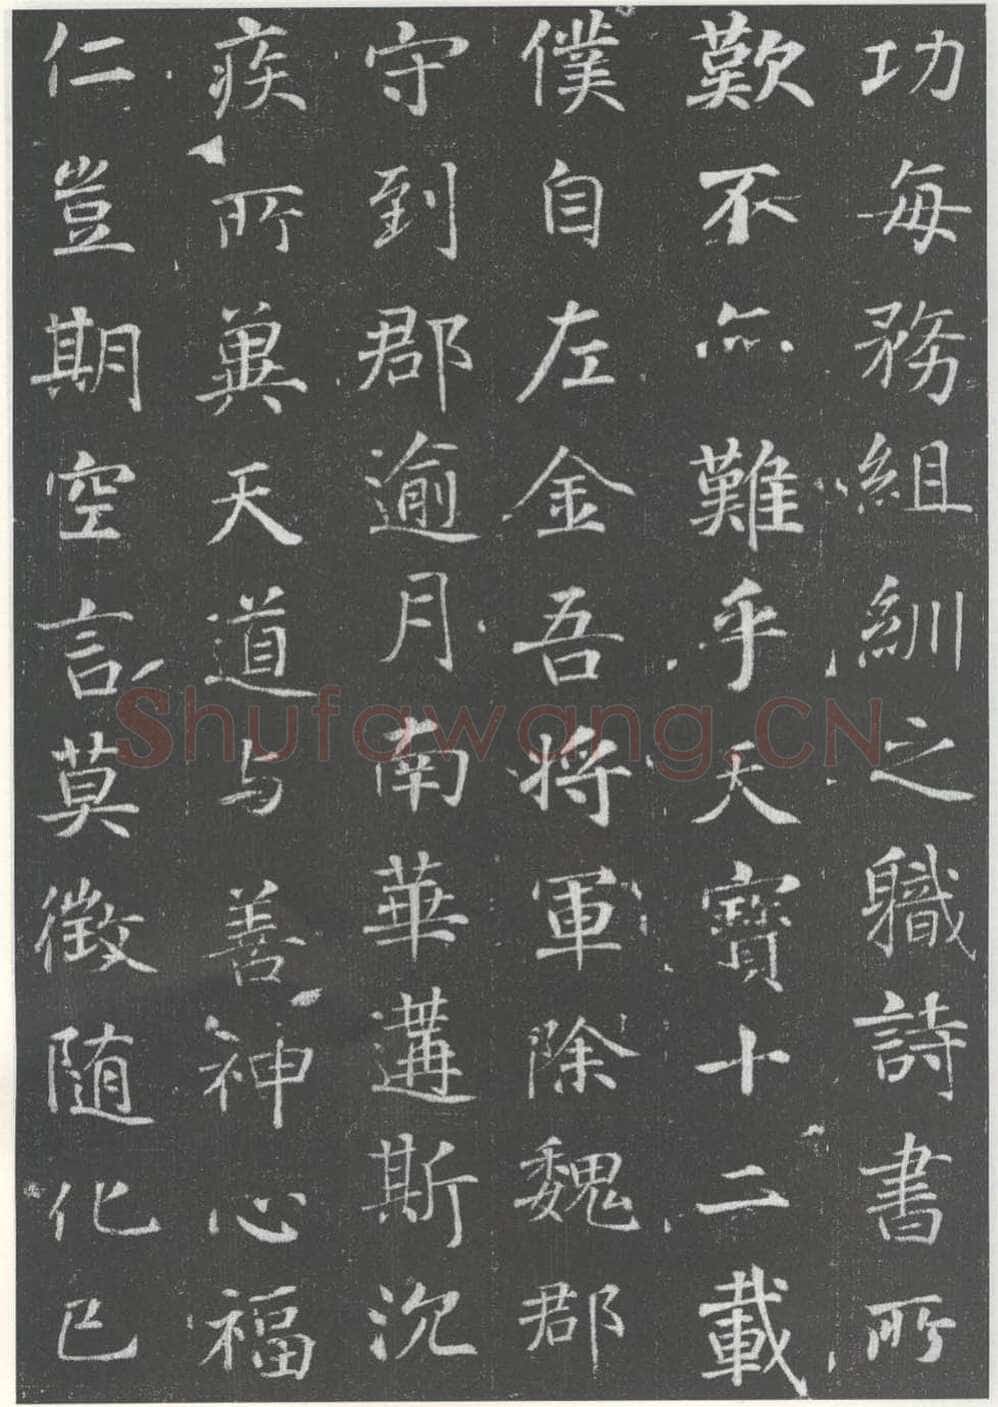 功每務組紃之職詩書所
歎不亦難乎天寶十二載
僕自左金吾將軍除魏郡
守到郡逾月南華遘斯沉
疾所冀天道与善神心福
仁豈期空言莫徵随化已
Shufawang.CN